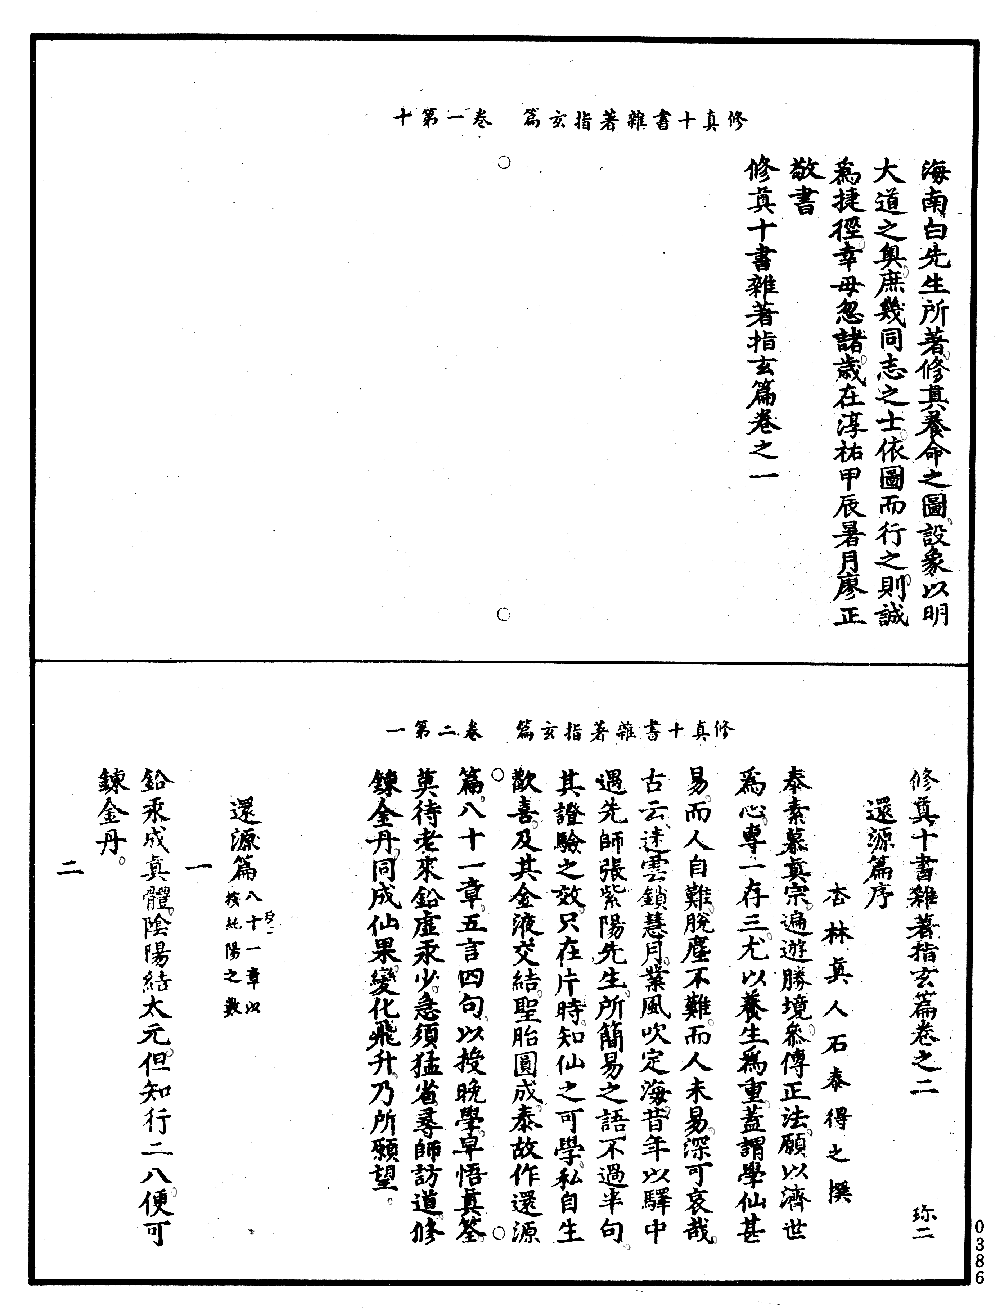 修真十書雜著指玄篇　卷一第十
海南白先生所著修真養命之圖設象以明
大道之奧庶幾同志之士依圖而行之則誠
為捷徑幸毋忽諸歲在淳祐甲辰暑月廖正
敬書
修真十書雜著指玄篇卷之一
修真十書雜著指玄篇　卷二第一
修真十書雜著指玄篇卷之二　珎二
還源篇序
杏林真人石泰得之撰
泰素慕真宗遍遊勝境參傳正法願以濟世
為心專一存三尤以養生為重蓋謂學仙甚
易而人自難脫塵不難而人未易深可哀哉
古云迷雲鎖慧月業風吹定海昔年以驛中
遇先師張紫陽先生所簡易之語不過半句
其證驗之效只在片時知仙之可學私自生
歡喜及其金液交結聖胎圓成泰故作還源
篇八十一章五言四句以授晚學早悟真筌
莫待老來鉛虛汞少急須猛省尋師訪道修
鍊金丹同成仙果變化飛升乃所願望。
還源篇 八十一章以按純陽之數
一
鉛汞成真體陰陽結太元但知行二八便可
鍊金丹。
二
0386